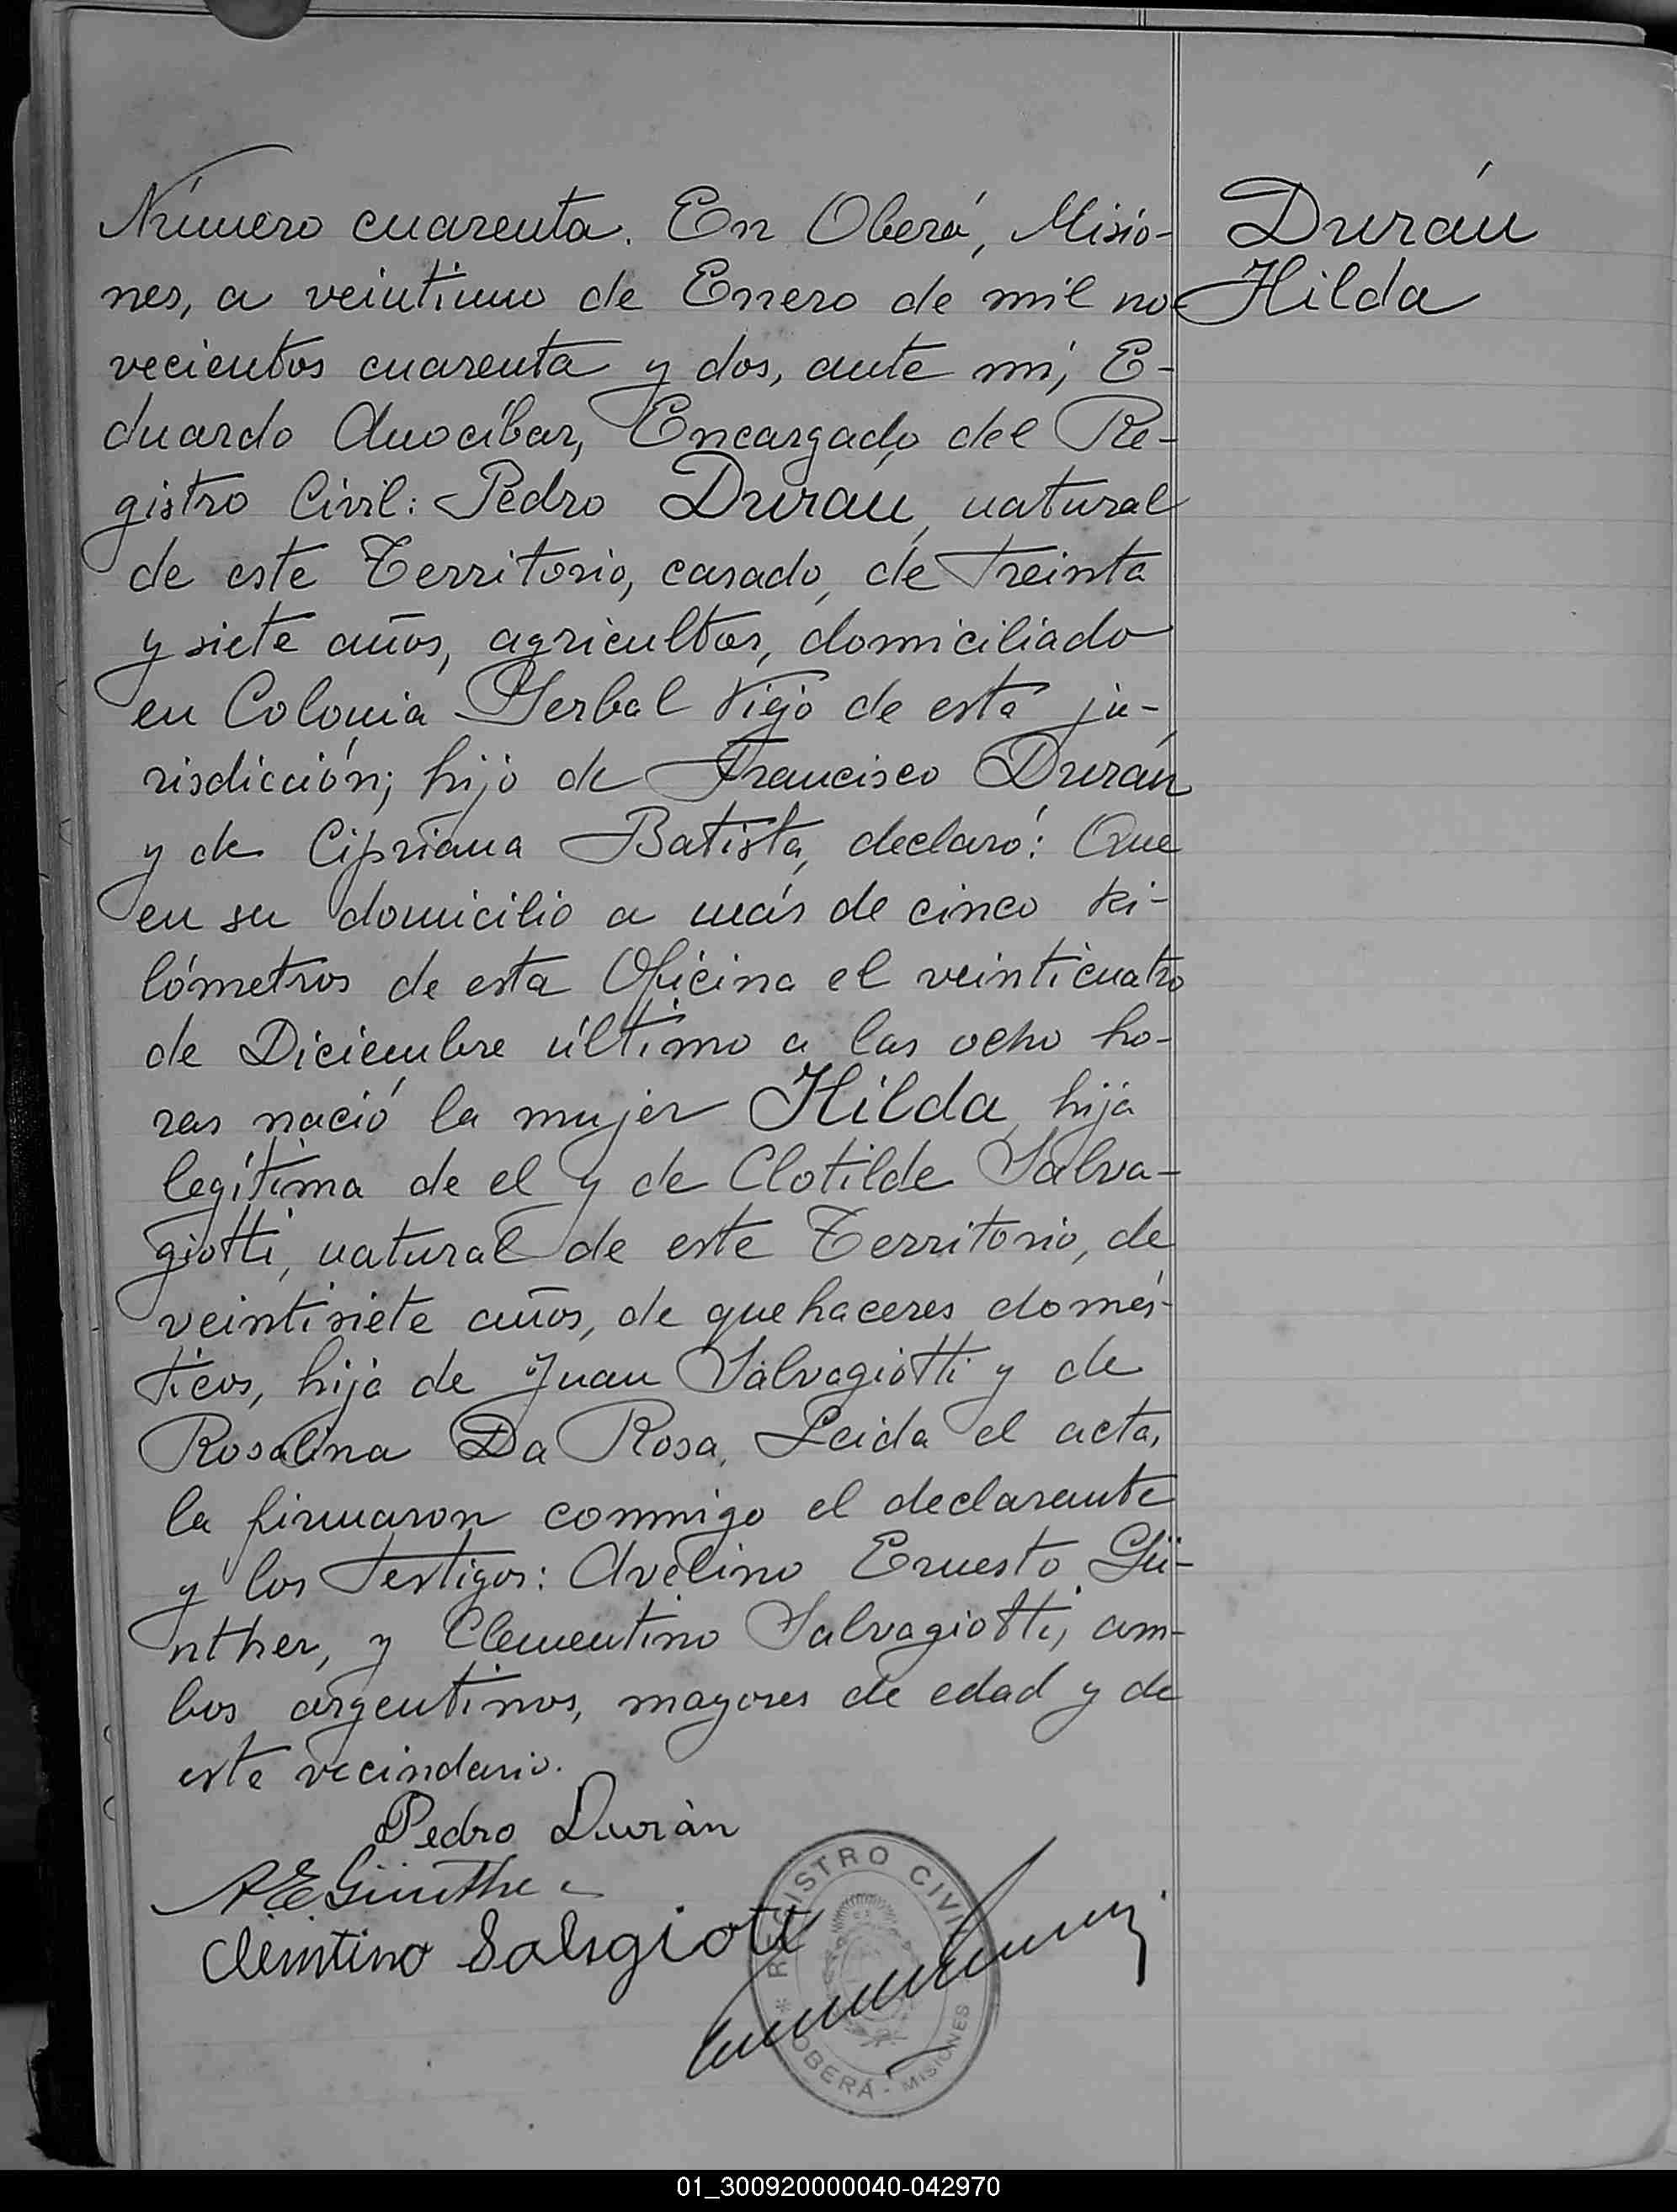 Número cuarenta. En Oberá, Misio-
nes, a veintiuno de Enero de mil no-
vecientos cuarenta y dos, ante mí, E-
duardo Anocíbar, Encargado del Re-
gistro Civil: Pedro Durán, natural
de este Territorio, casado, de treinta
y siete años, agricultor, domiciliado
en Colonia Yerbal Viejo de esta ju-
risdicción; hijo de Francisco Durán
y de Cipriana Batista, declaró: Que
en su domicilio a más de cinco ki-
lómetros de esta Oficina el veinticuatro
de Diciembre último a las ocho ho-
ras nació la mujer Hilda, hija
legítima de el y de Clotilde Salva-
giotti, natural de este Territorio, de
veintisiete años, de quehaceres domés-
ticos, hija de Juan Salvagiotti y de
Rosalina Da Rosa. Leida el acta,
la firmaron conmigo el declarante
y los testigos: Avelino Ernesto Gü-
nther, y Clementino Salvagiotti, am-
bos argentinos, mayores de edad y de
este vecindario.
Durán
Hilda
Pedro Durán
A.E. Günther
Clemtino Salvgiott
REGISTRO CIVIL
* OBERÁ - MISIONES
01_300920000040-042970